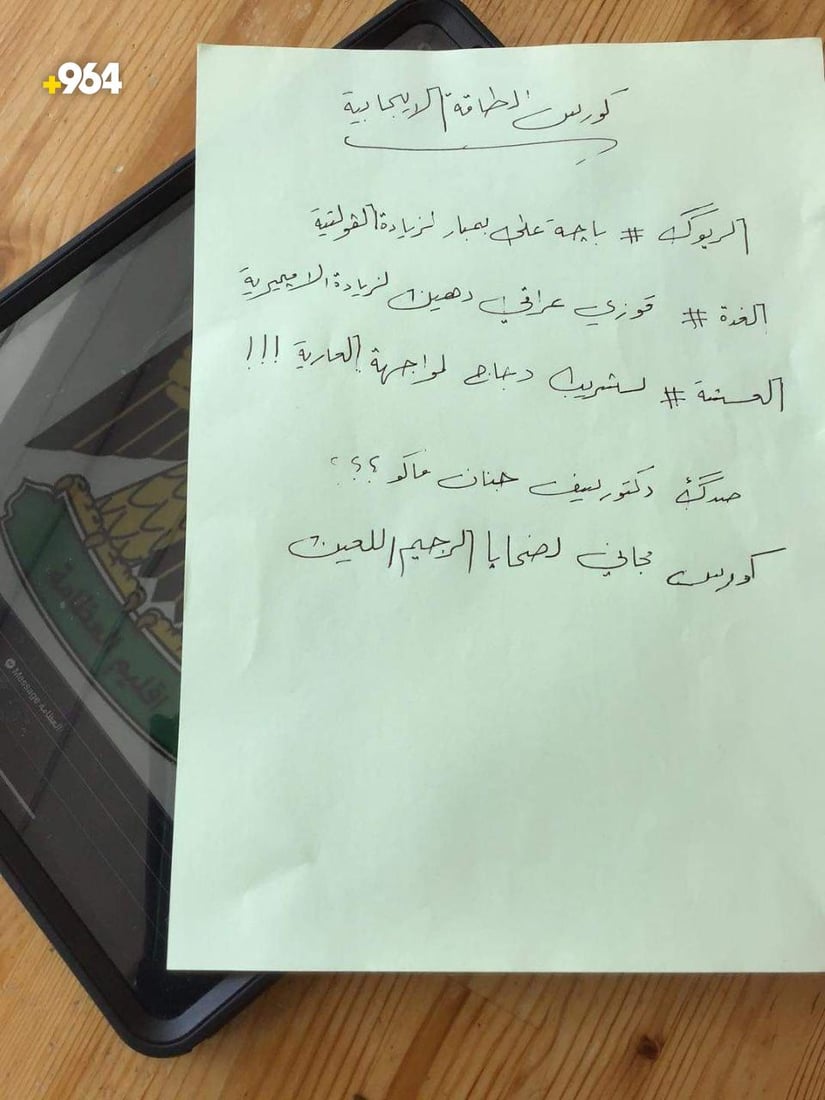 +964
كورس الطاقة الايجابية
الريوگ # باچة على بمبار لزيادة الفولتية
الغدة # قوزي عراقي دهين لزيادة الامبيرية
العشة # تشريب دجاج لمواجهة العارية !!!
صدگ دكتور سيف جنان ماكو ؟؟؟
كورس مجاني لضحايا الرجيم اللعين
اقليم العظامة
Message العظامة